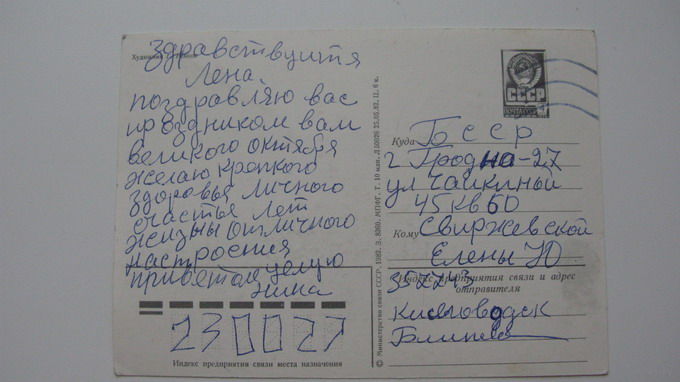 здравствуитя
Лена.
поздравляю вас
проздником вам
великого октября
желаю крепкого
здоровья личного
счастья лет
жизны отличного
настроения
приветом целую
Нина
230027
Индекс предприятия связи места назначения
© Министерство связи СССР. 1982. З. 8360. МПФГ. Т. 10 млн. Д 10020 25.05.82. Ц. 6 к.
СССР
Куда БССР
г Гродна-27
ул Чайкиный
45 кв 60
Кому Свиржевской
Елены Ю
Индекс предприятия связи и адрес
отправителя
357743
Кисловодск